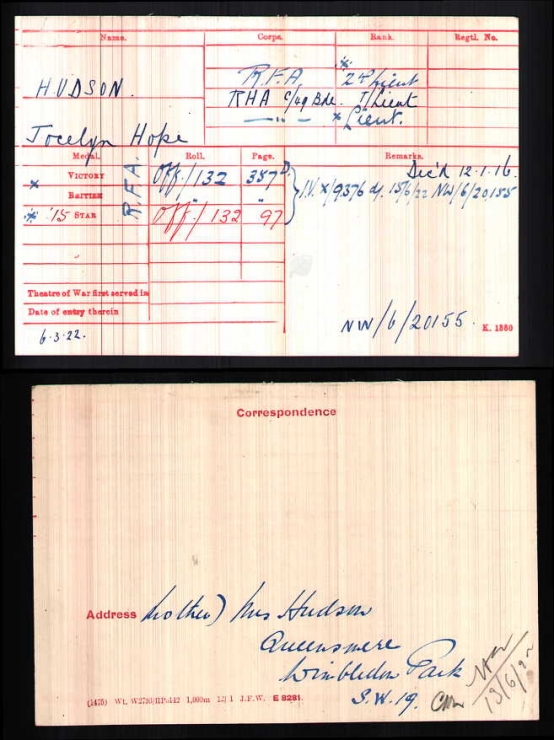 Name. Corps. Rank. Regtl. No.
HUDSON. R.F.A 2nd Lieut
RHA C/49 Bde. T/Lieut
Jocelyn Hope —"— * Lieut.
Medal. Roll. Page. Remarks.
* VICTORY R.F.A. Off/132 387D. Dec'd 12.1.16.
BRITISH " I.V. X/9376 d/ 15/6/22 NW/6/20155
* '15 STAR Off/132 97
Theatre of War first served in
Date of entry therein
6.3.22. NW/6/20155. K. 1380
Correspondence
Address Mother) Mrs Hudson
Queensmere
Wimbledon Park
S.W.19.
E 8281.